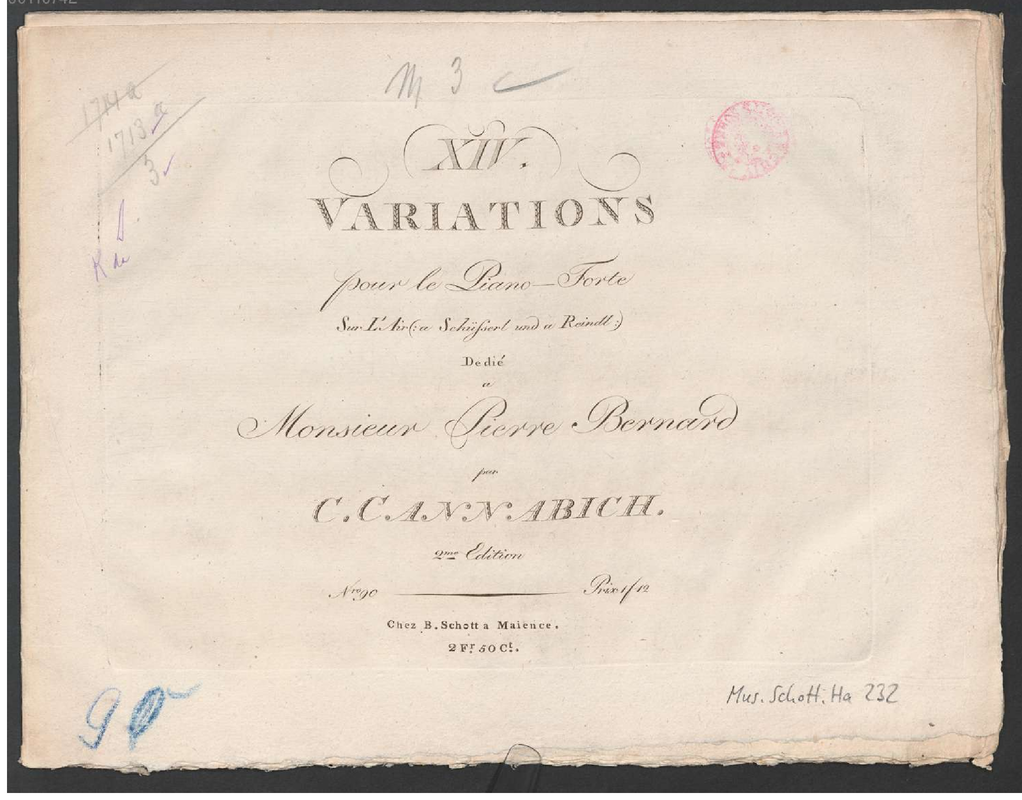 M 3
1714 a
1713 a
3
XIV.
VARIATIONS
pour le Piano-Forte
Sur L'Air (: a Schüsserl und a Reindl :)
Dedié
a
Monsieur Pierre Bernard
par
C. CANNABICH.
2me Edition
Nro 90 Prix 1f 12
Chez B. Schott a Maience.
2 Fr. 50 Ct.
Mus. Schott. Ha 232
90